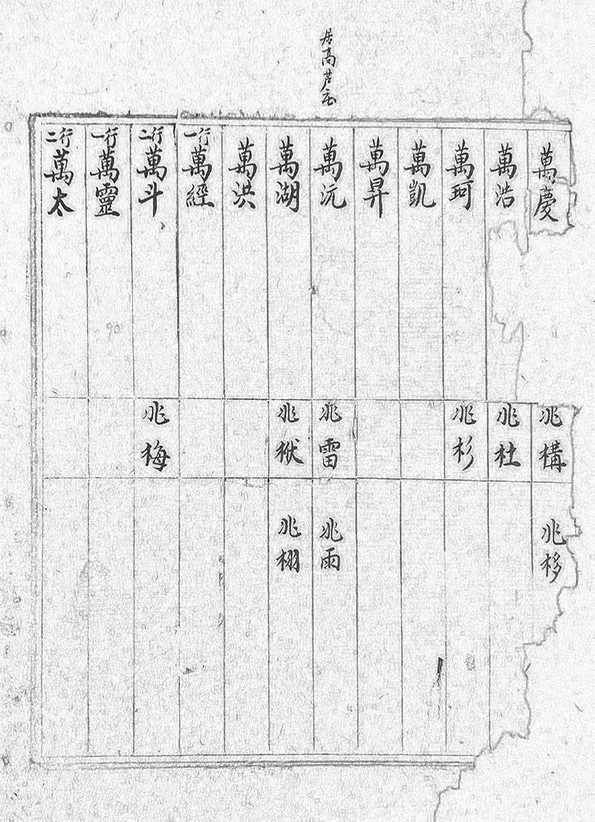 居高芦
萬慶 兆構 兆栘
萬浩 兆杜
萬珂 兆杉
萬凱
萬昇
萬沅 兆雷 兆雨
萬湖 兆 兆栩
萬洪
行一 萬經
行二 萬斗 兆梅
行一 萬靈
行二 萬太